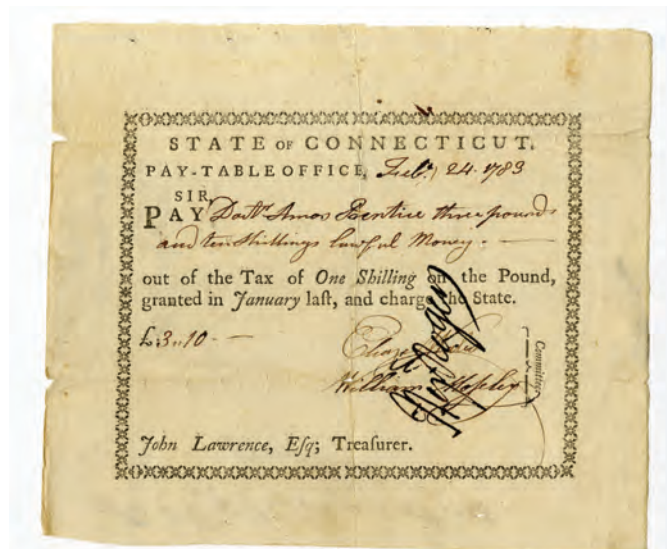 STATE OF CONNECTICUT.
PAY-TABLE OFFICE, Feb.ʸ 24. 1783
SIR,
PAY Doctʳ Amos Prentice three pounds
and ten Shillings lawful Money. —
out of the Tax of One Shilling on the Pound,
granted in January laſt, and charge the State.
£.3.,10. —
William Moseley
Committee.
John Lawrence, Eſq; Treaſurer.